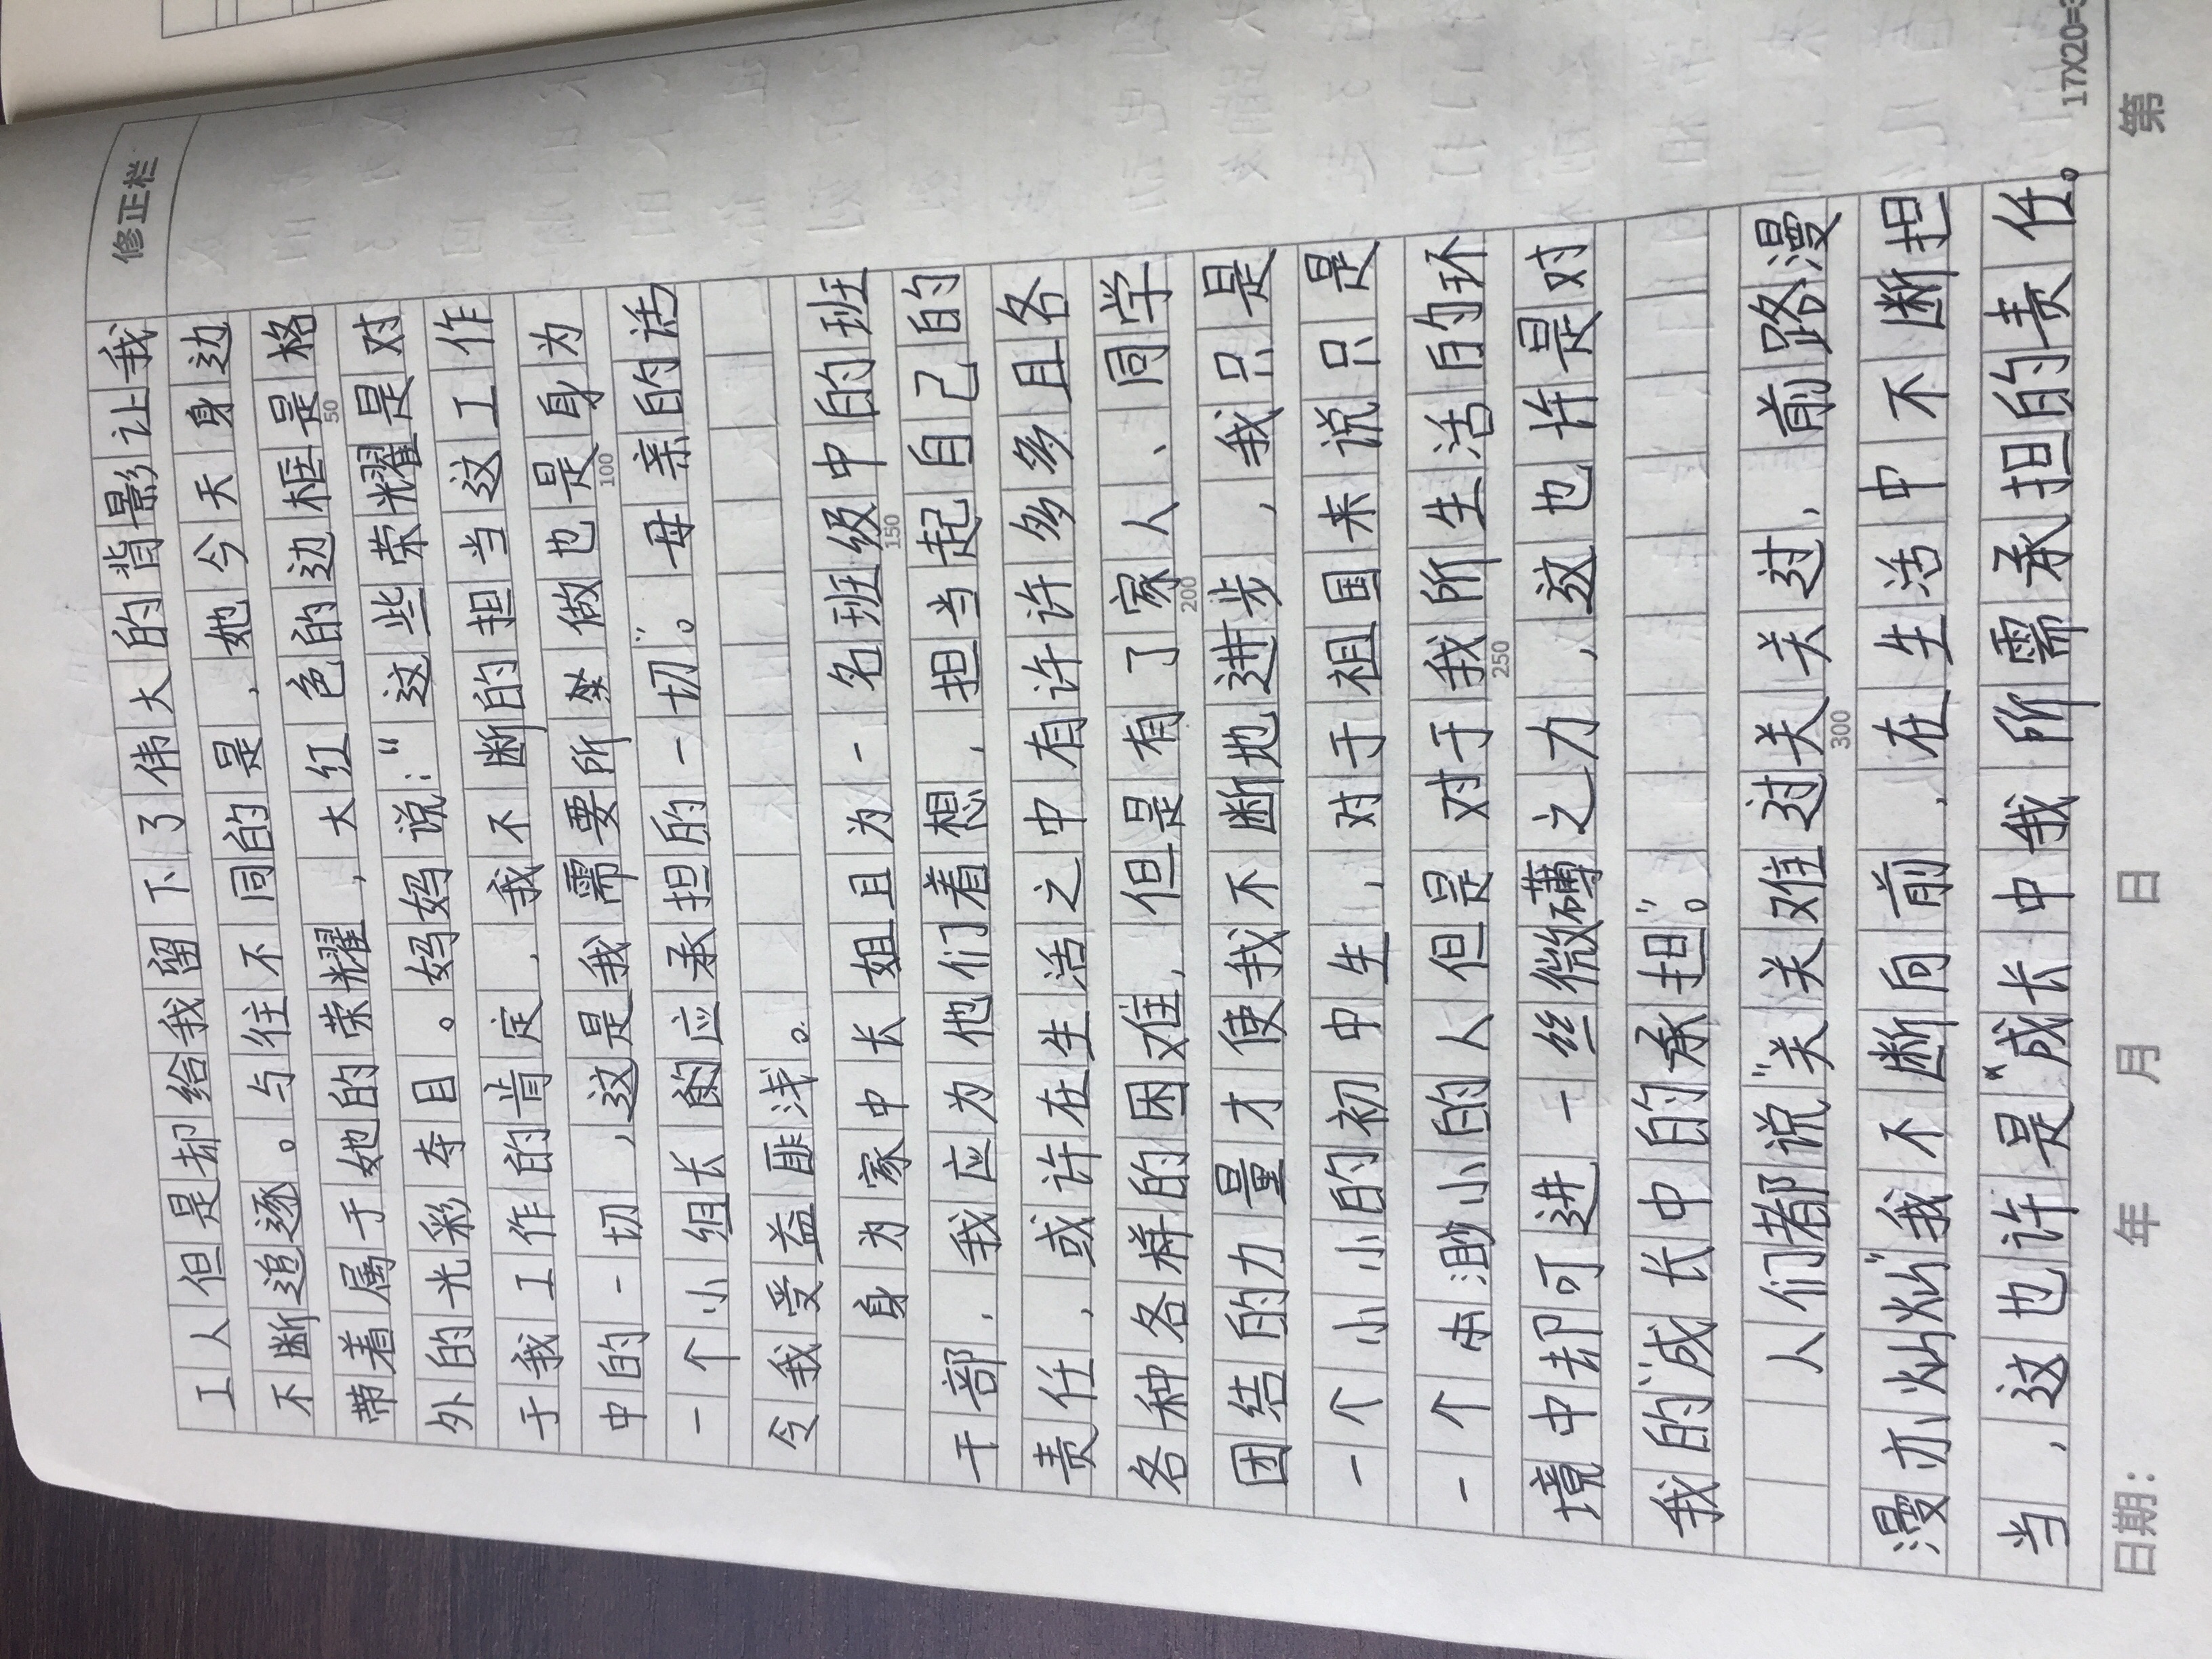 修正栏
工人但是却给我留下了伟大的背影让我
不断追逐。与往不同的是，她今天身边
带着属于她的荣耀，大红色的边框是格
50
外的光彩夺目。妈妈说：“这些荣耀是对
于我工作的肯定，我不断的担当这工作
中的一切，这是我需要所做也是身为
100
一个小组长的应承担的一切”。母亲的话
令我受益匪浅。
身为家中长姐且为一名班级中的班
150
干部，我应为他们着想，担当起自己的
责任，或许在生活之中有许许多多且各
各种各样的困难，但是有了家人、同学
200
团结的力量才使我不断地进步，我只是
一个小小的初中生，对于祖国来说只是
一个渺小的人但是对于我所生活的环
250
境中却可进一丝微薄之力，这也许是对
我的“成长中的承担”。
人们都说“关关难过关关过，前路漫
300
漫亦灿灿”我不断向前，在生活中不断担
当，这也许是“成长中我所需承担的责任。
17X20=3
日期： 年 月 日 第